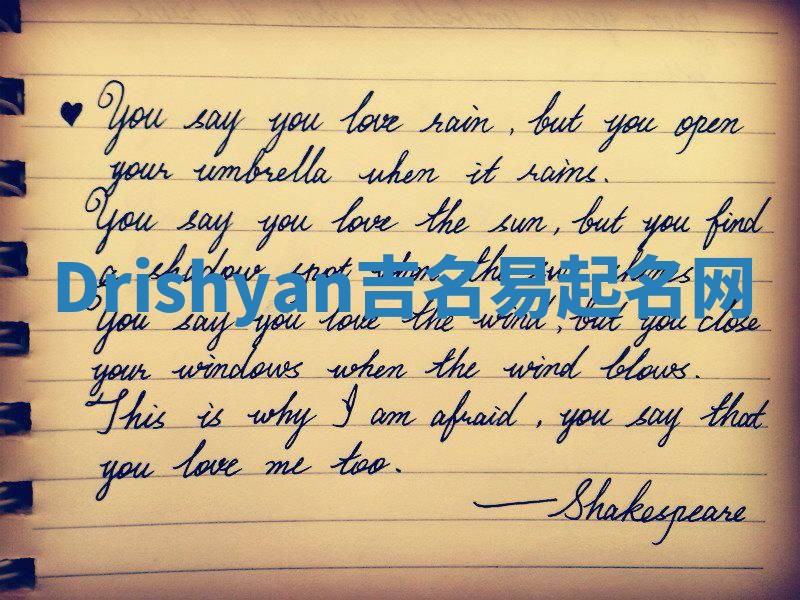 ♥ You say you love rain, but you open
your umbrella when it rains.
You say you love the sun, but you find
a shadow spot when the sun shines
Drishyan吉名易起名网
You say you love the wind, but you close
your windows when the wind blows.
This is why I am afraid, you say that
you love me too.
—Shakespeare